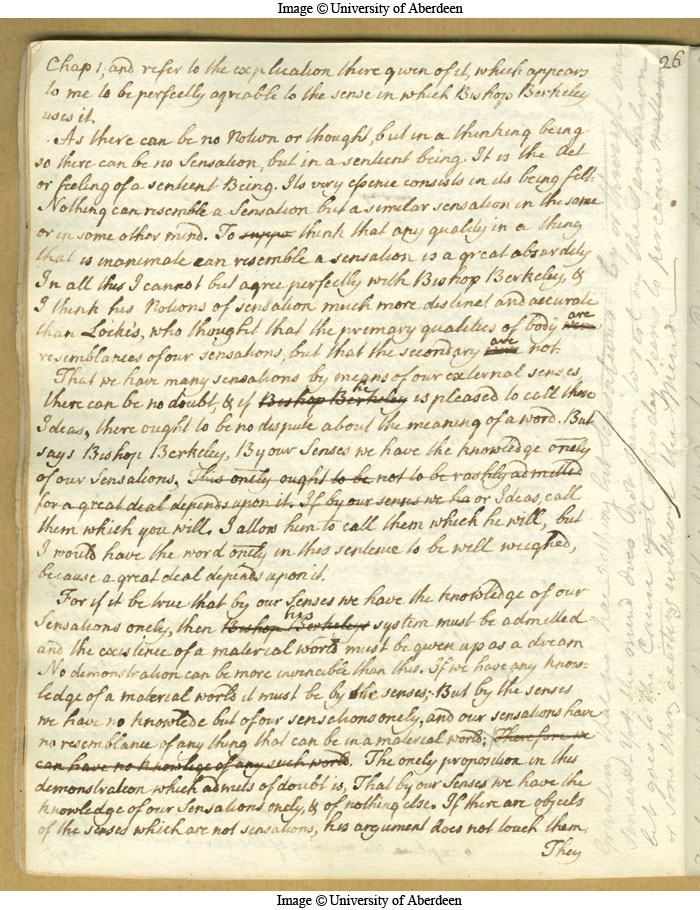 Image © University of Aberdeen
26
Chap 1, and refer to the explication there given of it, which appears
to me to be perfectly agreable to the sense in which Bishop Berkeley
uses it.
As there can be no Notion or thought, but in a thinking being
so there can be no Sensation, but in a sentient being. It is the Act
or feeling of a sentient Being. Its very essence consists in its being felt.
Nothing can resemble a Sensation but a similar sensation in the same
or in some other mind. To suppo think that any quality in a thing
that is inanimate can resemble a sensation is a great absurdity
In all this I cannot but agree perfectly with Bishop Berkeley, &
I think his Notions of sensation much more distinct and accurate
than Locke's, who thought that the primary qualities of body are
resemblances of our sensations, but that the secondary are not.
That we have many sensations by means of our external senses,
there can be no doubt, & if Bishop Berkeley he is pleased to call those
Ideas, there ought to be no dispute about the meaning of a word. But
says Bishop Berkeley, By our Senses we have the knowledge onely
of our Sensations, This onely ought to be not to be rashly admitted
for a great deal depends upon it. If by our senses we ha or Ideas, call
them which you will. I allow him to call them which he will, but
I would have the word onely in this sentence to be well weighed,
because a great deal depends upon it.
For if it be true that by our Senses we have the knowledge of our
Sensations onely, then Bishop Berkeleys his system must be admitted
and the existence of a material world must be given up as a dream
No demonstration can be more invincible than this. If we have any Know-
ledge of a material world it must be by the senses; But by the senses
we have no knowledge but of our sensations onely, and our sensations have
no resemblance of any thing that can be in a material world; Therefore we
can have no knowlege of any such world. The onely proposition in this
demonstration which admits of doubt is, That by our Senses we have the
knowledge of our Sensations onely, & of nothing else. If there are objects
of the senses which are not sensations, his argument does not touch them
They
Image © University of Aberdeen